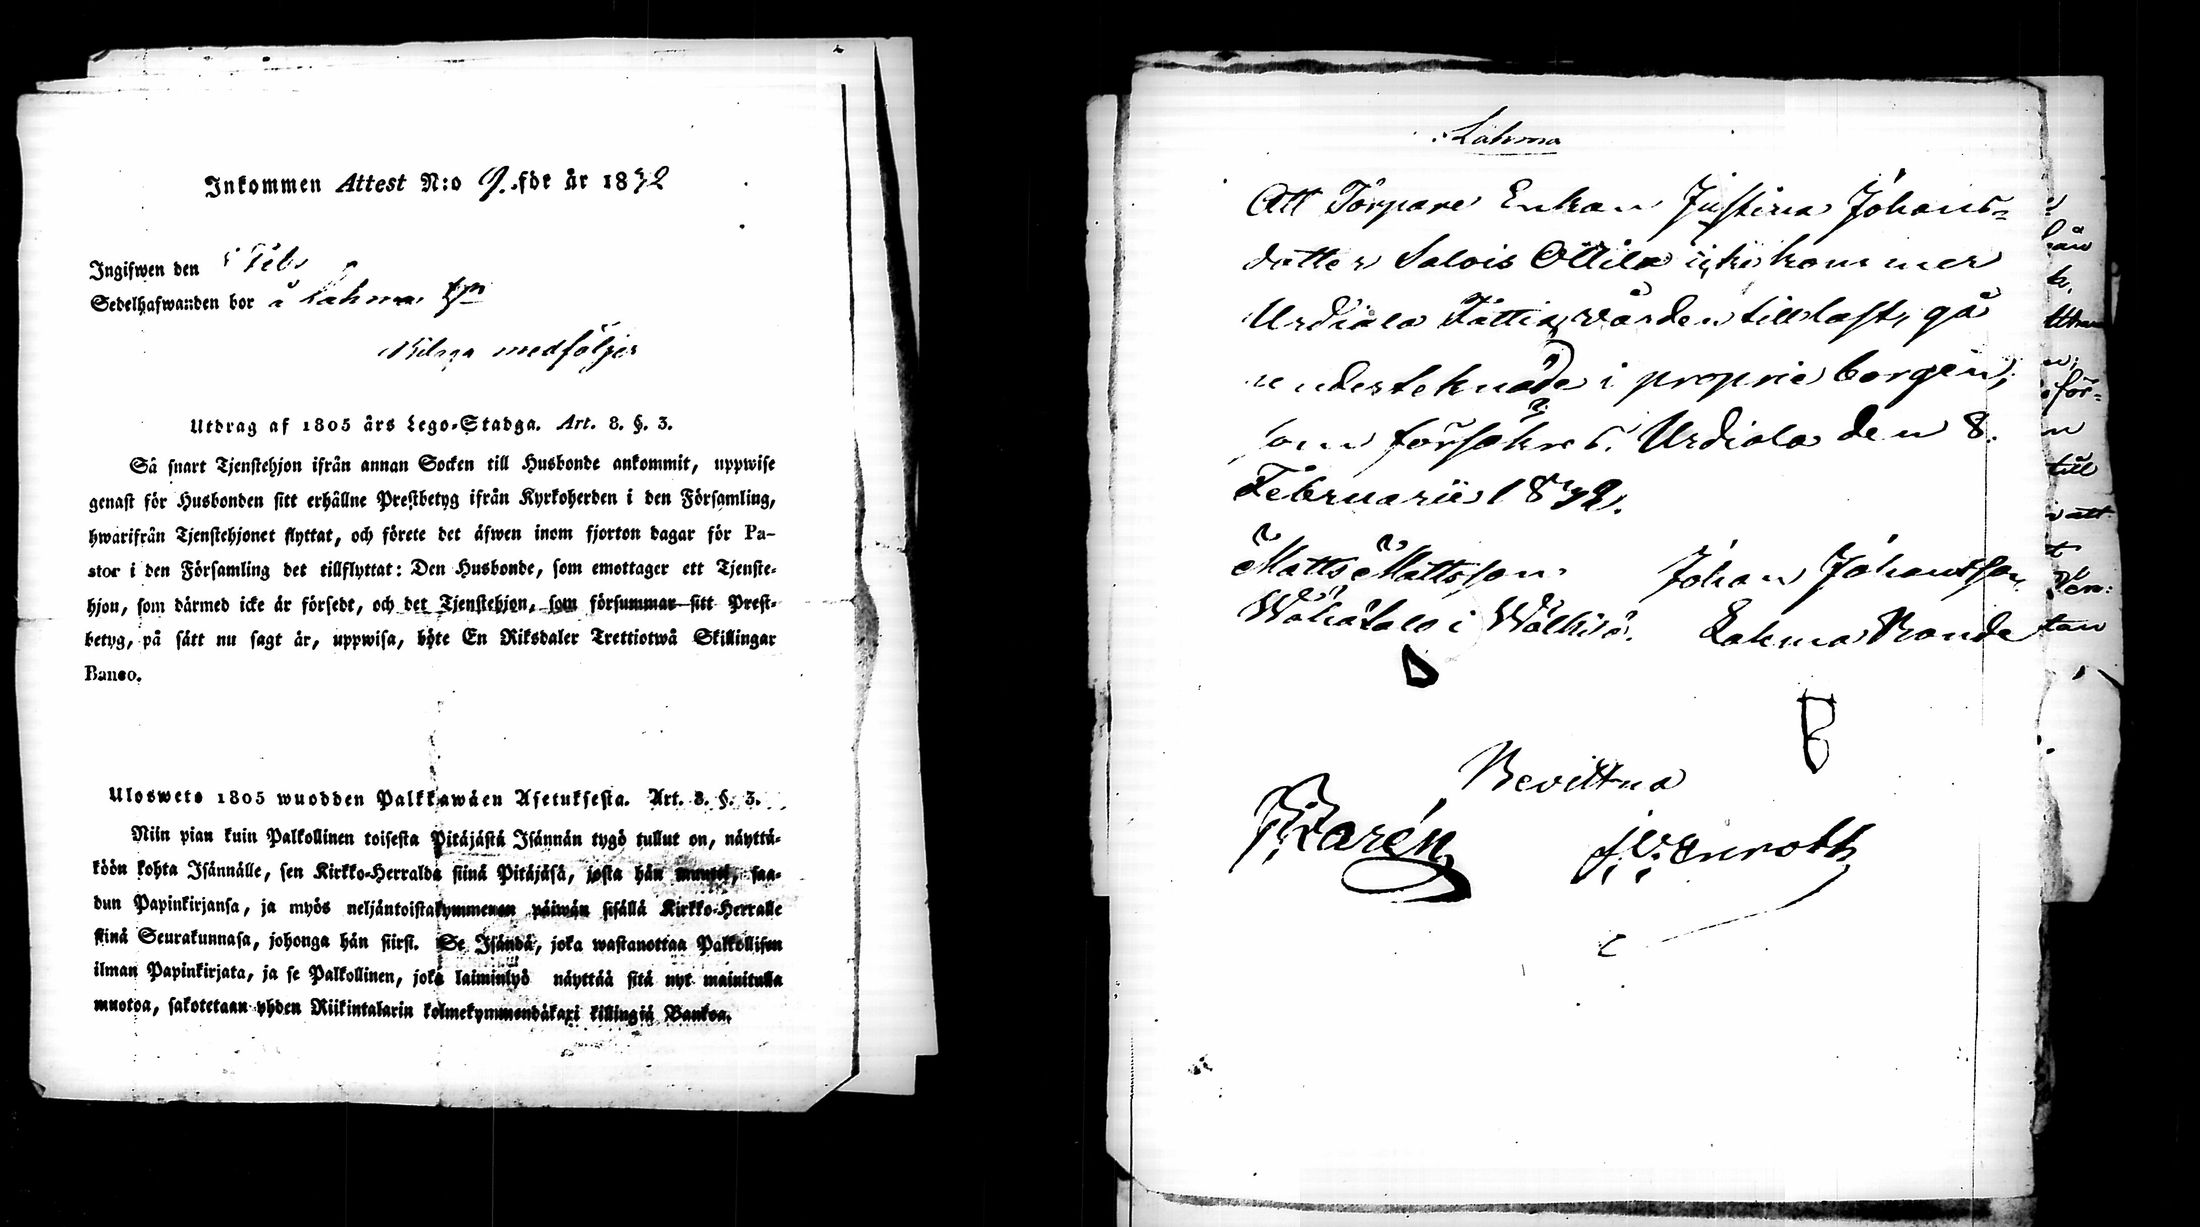 Inkommen Attest N:o 9. för år 1872
Ingifwen den Feb.
Sedelhafwanden bor å Lahma
Bilaga medföljer
Utdrag af 1805 års Lego-Stadga. Art. 8. §. 3.
Så snart Tjenstehjon ifrån annan Socken till Husbonde ankommit, uppwise
genast för Husbonden sitt erhållne Prestbetyg ifrån Kyrkoherden i den Församling,
hwarifrån Tjenstehjonet flyttat, och förete det äfwen inom fjorton dagar för Pa-
stor i den Församling det tillflyttat: Den Husbonde, som emottager ett Tjenste-
hjon, som därmed icke är försedt, och det Tjenstehjon, som försummar sitt Prest-
betyg, på sätt nu sagt är, uppwisa, böte En Riksdaler Trettiotwå Skillingar
Banco.
Ulosweto 1805 wuodden Palkkawäen Asetuksesta. Art. 8. §. 3.
Niin pian kuin Palkollinen toisesta Pitäjästä Isännän tygö tullut on, näyttä-
köön kohta Isännälle, sen Kirkko-Herralda siinä Pitäjäsä, josta hän muutti, saa-
dun Papinkirjansa, ja myös neljäntoistakymmenen päiwän sisällä Kirkko-Herralle
siinä Seurakunnasa, johonga hän siirsi. Se Isändä, joka wastanottaa Palkollisen
ilman Papinkirjata, ja se Palkollinen, joka laiminlyö näyttää sitä nyt mainitulla
muotoa, sakotetaan yhden Riikintalarin kolmekymmendäkaxi killingiä Bankoa.
Lahma
Att Torpare Enkan Justina Johans-
dotter Salois Ottila icke kommer
Urdiala Fattigvården till last, gå
underteknade i proprie borgen,
som försäkras. Urdiala den 8.
Februarii 1872.
Matts Mattsson Johan Johansson
i Wälkilä. Lahma Ronde
Bevittna
Karén J. W. Enroth